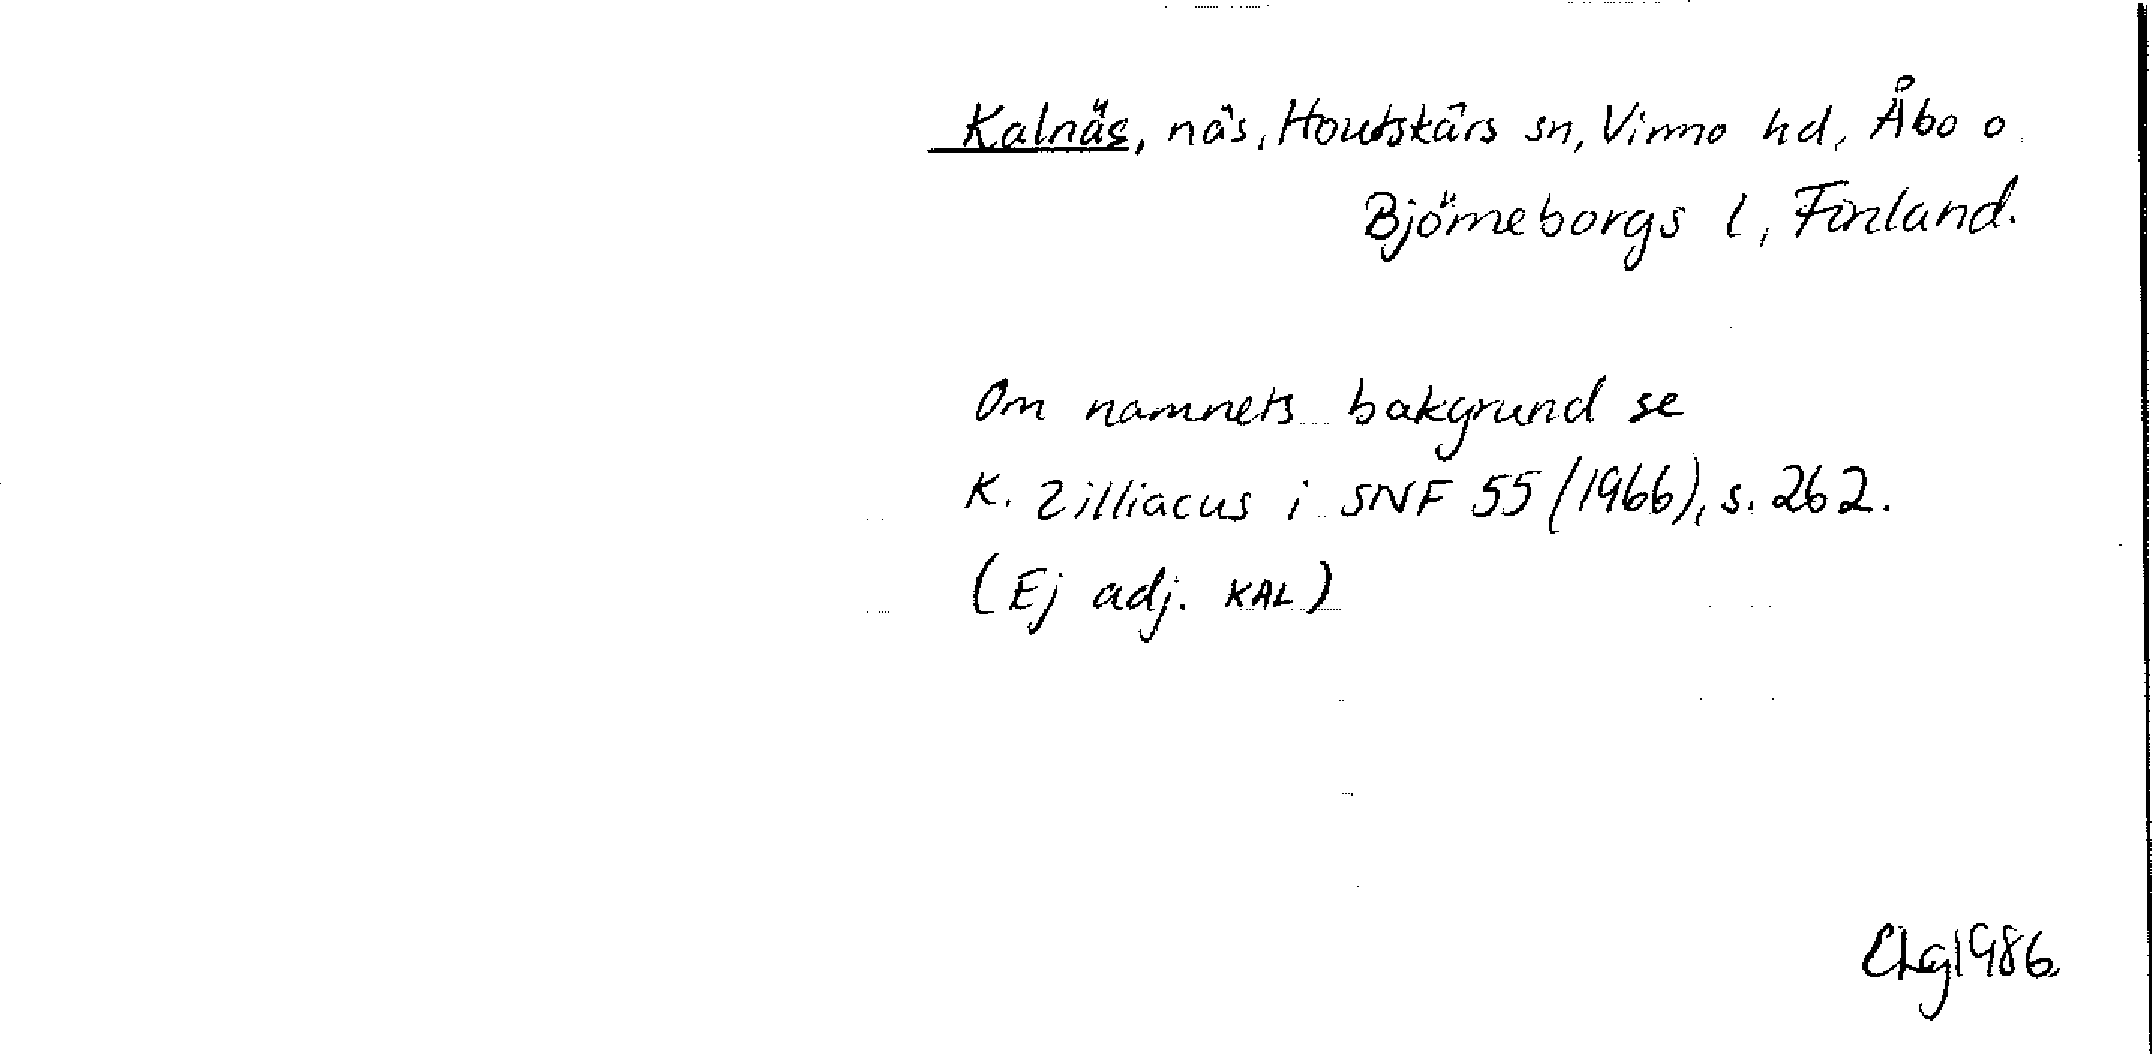 Kalnäs, näs, Houtskärs sn, Virmo hd, Åbo o.
Björneborgs l, Finland.
Om namnets bakgrund se
K. Zilliacus i SNF 55 (1966), s. 262.
(Ej adj. KAL)
ELg 1986